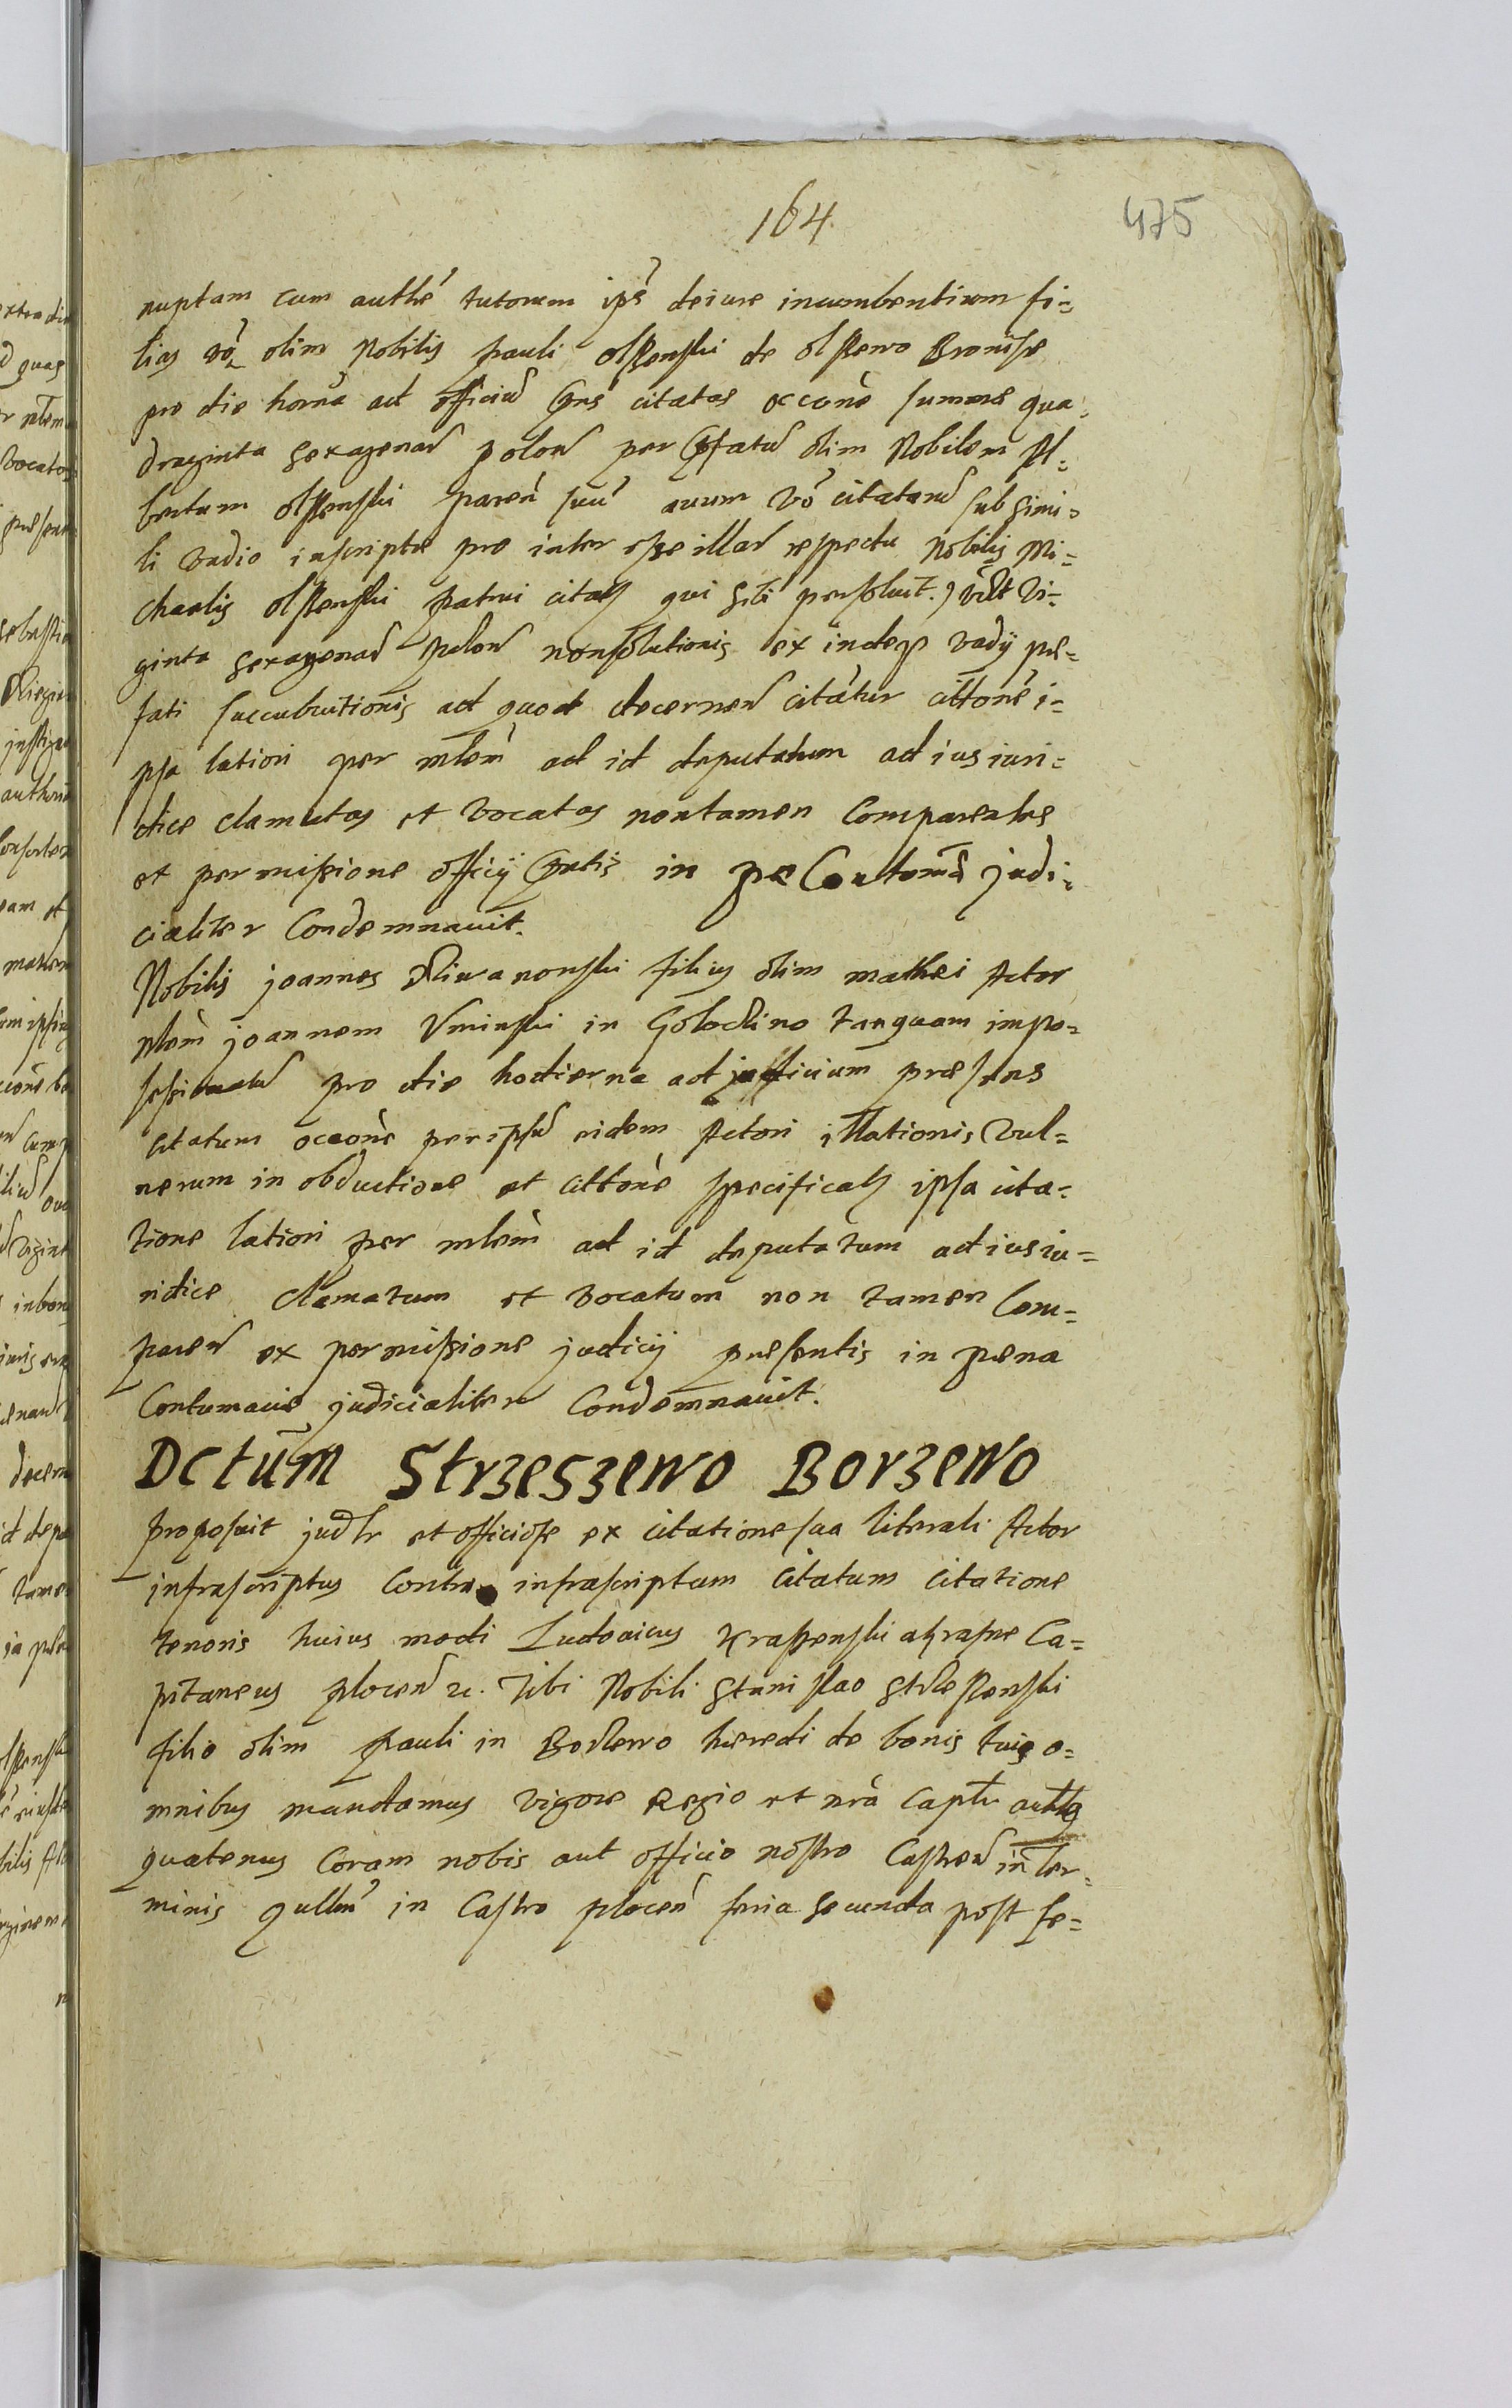 164
475
nuptam cum authē tutorum ips̄ deiure incumbentium fi=
lias vō olim Nobilis pauli olszenski de olszewo Bronisze
pro die horna ad officiū pn̄s citatas occōne summe qua=
draginta sexagenar polon per pfatū olim Nobilem Al=
bertum olszenski paren suū auum vō citatarū sub simi=
li vadio inscripte pro inter esse illar respectu Nobilis Mi=
chaelis olszenski patrui citat qui sibi persoluit vi=
ginta sexagenar polon nonsolutionis ex indeqz vadij pre=
fati succubuitionis ad quod decernen citātur cittonē i=
psa latiori per mlem ad id deputatum ad ius iuri=
dice clamatas et vocatas nontamen Comparentes
et permissione officij pntis in pe Contoma judi=
cialiter Condemnauit.
Nobilis joannes filius olim mathei Actor
nlem joannem Vminski in Golodlino tanquam impo=
ssessionatū pro die hodierna ad officium præsens
citatum occōne peripsū eidem Actori illationis vul=
nerum in obductione et cittone specificat ipsa cita=
tione latiori per mlem ad id deputatum ad ius iu=
ridice clamatum et vocatum non tamen Com=
paren ex permissione judicij presentis in pena
Contumacie judicialiter Condemnauit.
DCtum Strzeszewo Borzewo
proposuit judlr et officiose ex citatione sua literali Actor
infrascriptus Contra infrascriptum citatum citatione
tenoris huius modi Ludouicus Krassenski akrasne Ca=
pitaneus plocen zc. Tibi Nobili Stanislao Strzeszenski
filio olim pauli in Borzewo hæredi de bonis tuis o=
mnibus mandamus vigore Regio et nrā Captu auttē
quatenus Coram nobis aut officio nostro Castren in ter=
minis qullm in Castro plocen feria secunda post fe=